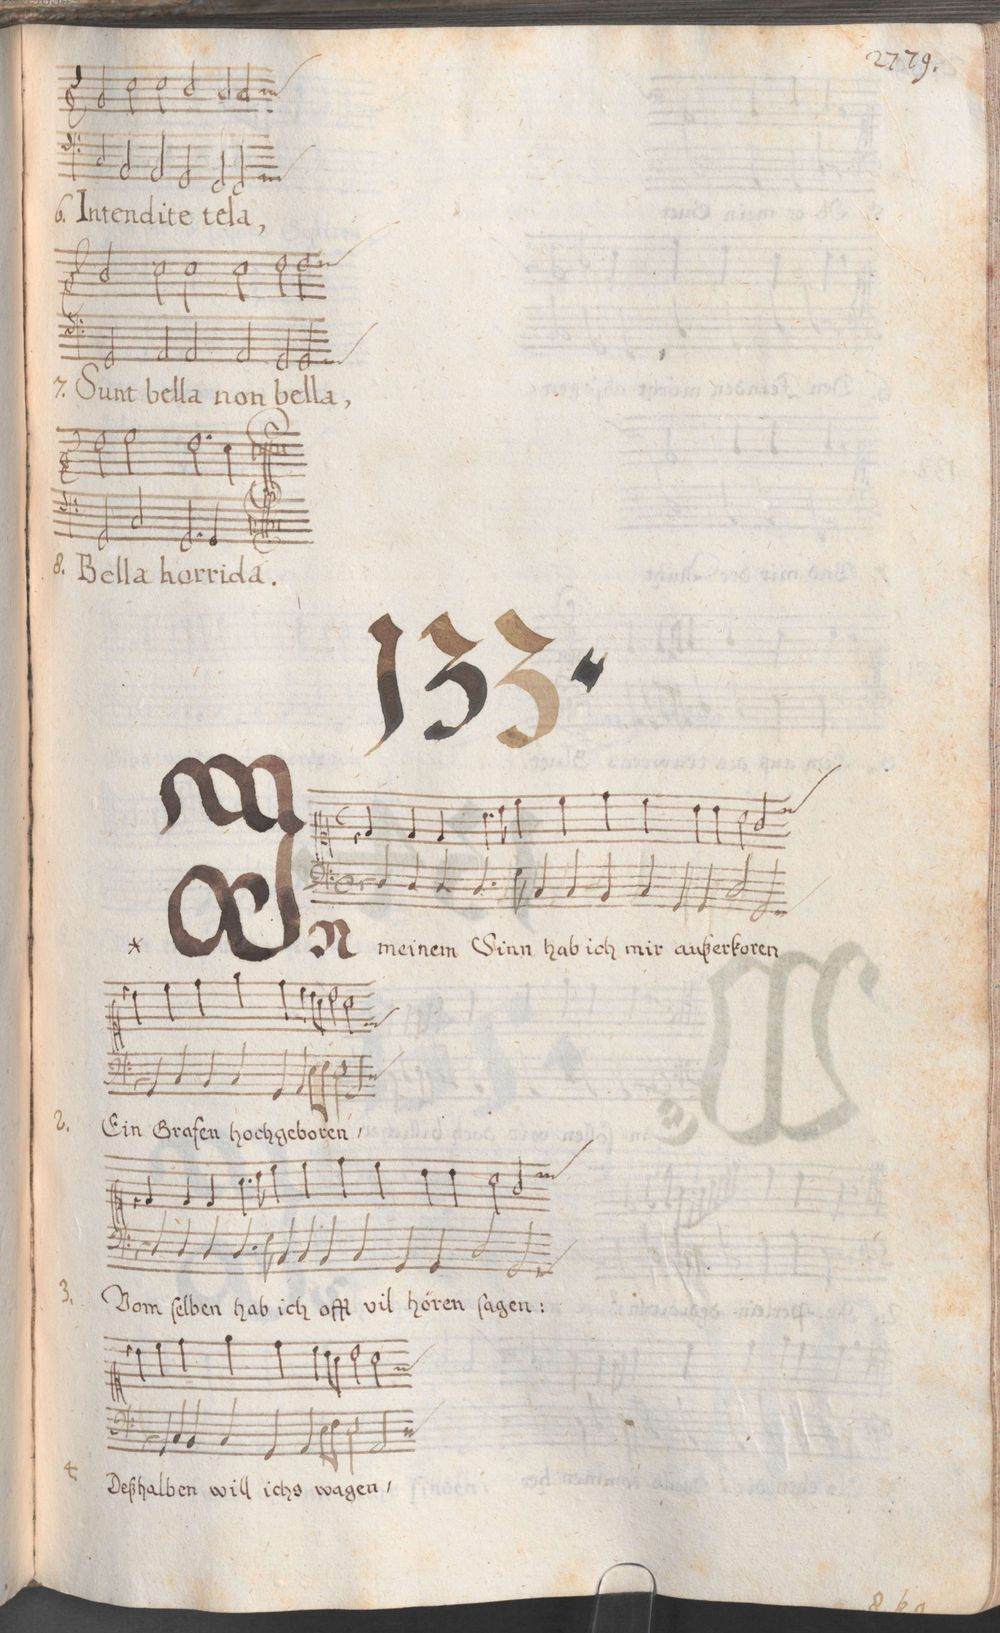 2779.
6. Intendite tela,
7. Sunt bella non bella,
8. Bella horrida.
133.
* In meinem Sinn hab ich mir außerkoren
2. Ein Grafen hochgeboren,
3. Vom selben hab ich offt vil hören sagen:
4 Deßhalben will ichs wagen,